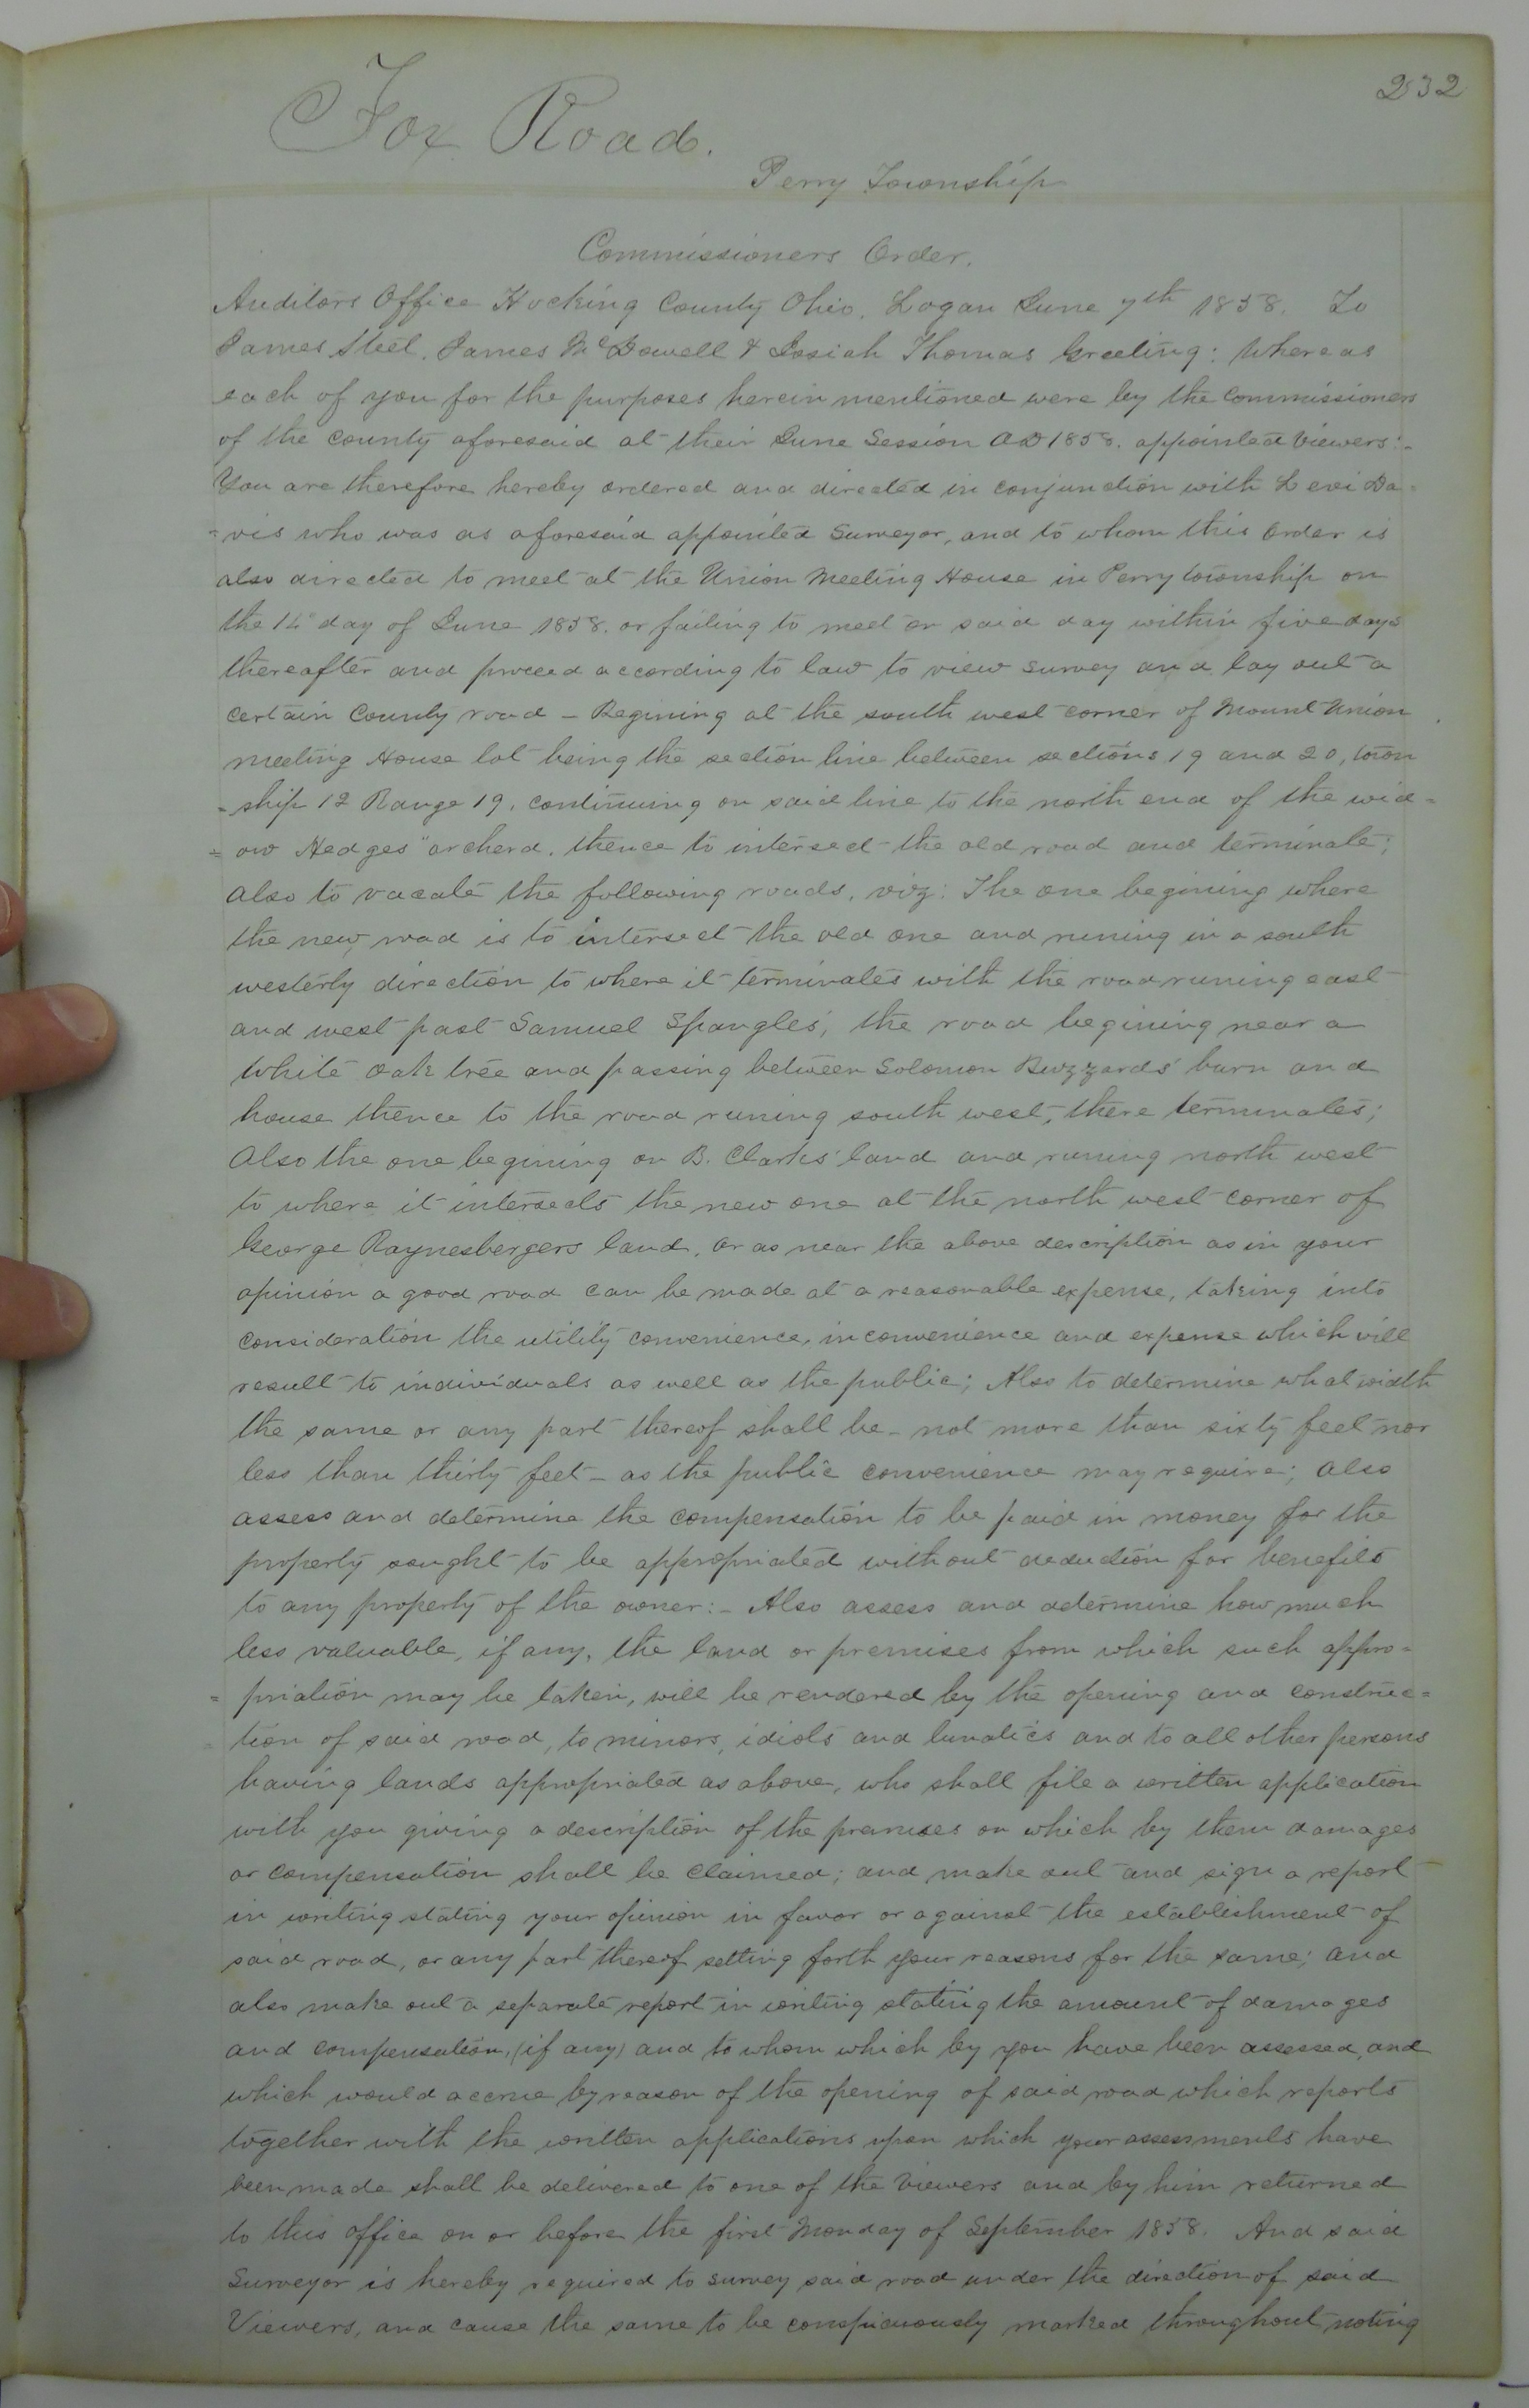 232
Fox Road.
Perry Township
Commissioners Order.
Auditors Office Hocking County Ohio, Logan June 7th 1858. To
James Steel, James McDowell & Josiah Thomas Greeting: Whereas
each of you for the purposes herein mentioned were by the Commissioners
of the County aforesaid at their June Session AD 1858. appointed Viewers:-
You are therefore hereby ordered and directed in conjunction with Levi Da-
=vis who was as aforesaid appointed Surveyor, and to whom this Order is
also directed to meet at the Union Meeting House in Perry township on
the 14" day of June 1858. or failing to meet on said day within five days
thereafter and proceed according to law to view survey and lay out a
certain County road - Begining at the south west corner of Mount Union
meeting House lot being the section line between sections 19 and 20, town
=ship 12 Range 19, continuing on said line to the north end of the wid=
=ow Hedges" orcherd, thence to intersect the old road and terminate;
also to vacate the following roads, viz: The one begining where
the new road is to intersect the old one and runing in a south
westerly direction to where it terminates with the road runing east
and west past Samuel Spangles', the road begining near a
white oak tree and passing between Solomon Buzzards' barn and
house thence to the road runing south west, there terminates;
Also the one begining on B. Clarks' land and runing north west
to where it intersects the new one at the north west corner of
George Raynesbergers land, or as near the above description as in your
opinion a good road can be made at a reasonable expense, taking into
consideration the utility convenience, inconvenience and expense which will
result to individuals as well as the public; Also to determine what width
the same or any part thereof shall be - not more than sixty feet nor
less than thirty feet - as the public convenience may require; also
assess and determine the compensation to be paid in money for the
property sought to be appropriated without deduction for benefits
to any property of the owner:- Also assess and determine how much
less valuable, if any, the land or premises from which such appro=
=priation may be taken, will be rendered by the opening and construc=
=tion of said road, to minors, idiots and lunatics and to all other persons
having lands appropriated as above, who shall file a written application
with you giving a description of the premises on which by them damages
or compensation shall be claimed; and make out and sign a report
in writing stating your opinion in favor or against the establishment of
said road, or any part thereof setting forth your reasons for the same; and
also make out a separate report in writing stating the amount of damages
and compensation, (if any) and to whom which by you have been assessed, and
which would accrue by reason of the opening of said road which reports
together with the written applications upon which your assessments have
been made shall be delivered to one of the Viewers and by him returned
to this office on or before the first Monday of September 1858. And said
Surveyor is hereby required to survey said road under the direction of said
Viewers, and cause the same to be conspicuously marked throughout, noting